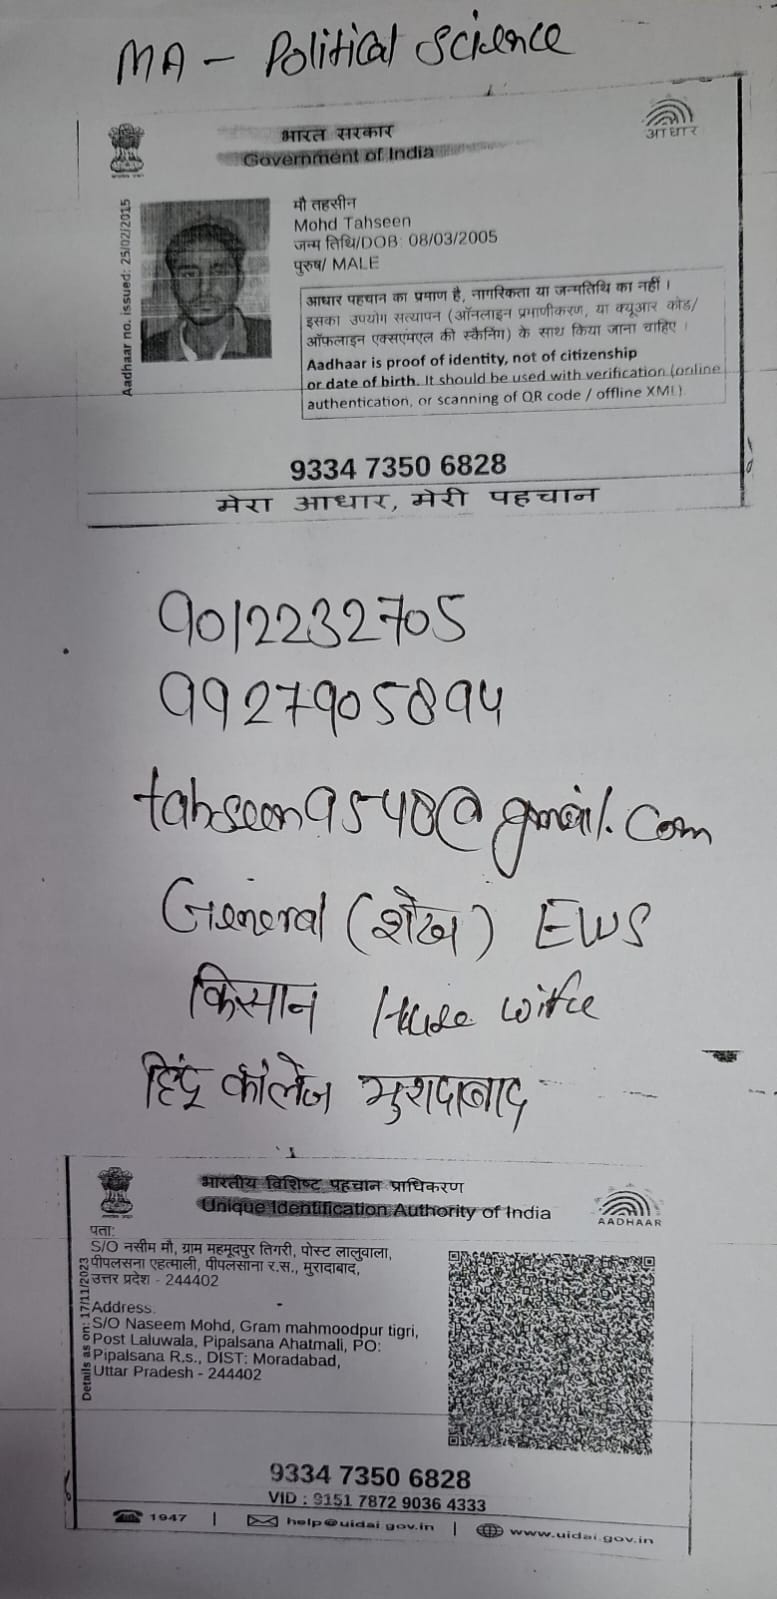 MA - Political Science
भारत सरकार
Government of India
आधार
Aadhaar no. issued: 25/02/2015
मौ तहसीन
Mohd Tahseen
जन्म तिथि/DOB: 08/03/2005
पुरुष/ MALE
आधार पहचान का प्रमाण है, नागरिकता या जन्मतिथि का नहीं ।
इसका उपयोग सत्यापन (ऑनलाइन प्रमाणीकरण, या क्यूआर कोड/
ऑफलाइन एक्सएमएल की स्कैनिंग) के साथ किया जाना चाहिए ।
Aadhaar is proof of identity, not of citizenship
or date of birth. It should be used with verification (online
authentication, or scanning of QR code / offline XML).
9334 7350 6828
मेरा आधार, मेरी पहचान
9012232705
9927905894
tahseen9548@gmail.com
General (शेख) EWS
किसान House wife
हिंदू कॉलेज मुरादाबाद
भारतीय विशिष्ट पहचान प्राधिकरण
Unique Identification Authority of India
AADHAAR
Details as on: 17/11/2023
पता:
S/O नसीम मौ, ग्राम महमूदपुर तिगरी, पोस्ट लालुवाला,
पीपलसना एहत्माली, पीपलसाना र.स., मुरादाबाद,
उत्तर प्रदेश - 244402
Address:
S/O Naseem Mohd, Gram mahmoodpur tigri,
Post Laluwala, Pipalsana Ahatmali, PO:
Pipalsana R.s., DIST: Moradabad,
Uttar Pradesh - 244402
9334 7350 6828
VID : 9151 7872 9036 4333
1947 | help@uidai.gov.in | www.uidai.gov.in